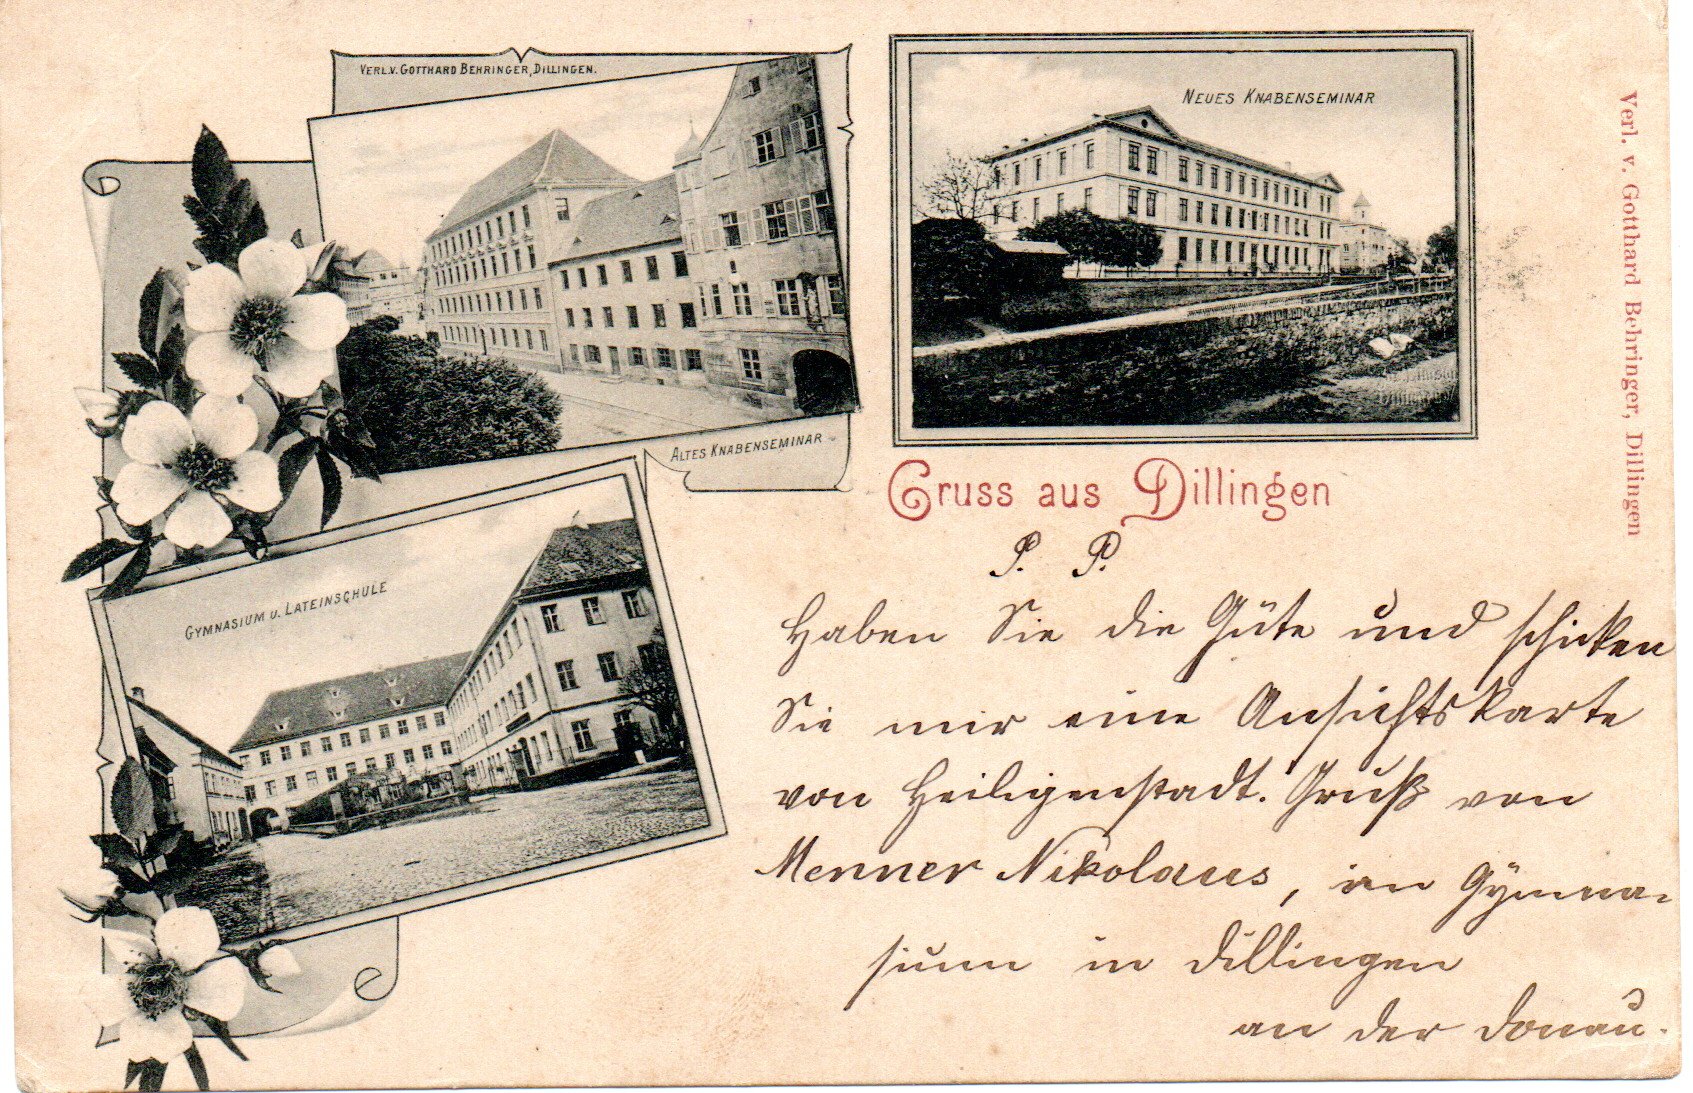 VERL. V. GOTTHARD BEHRINGER, DILLINGEN.
ALTES KNABENSEMINAR
NEUES KNABENSEMINAR
GYMNASIUM U. LATEINSCHULE
Verl. v. Gotthard Behringer, Dillingen
Gruss aus Dillingen
P. P.
Haben Sie die Güte und schicken
Sie mir eine Ansichtskarte
von Heiligenstadt. Gruß von
Menner Nikolaus, im Gymna-
sium in Dillingen
an der Donau.